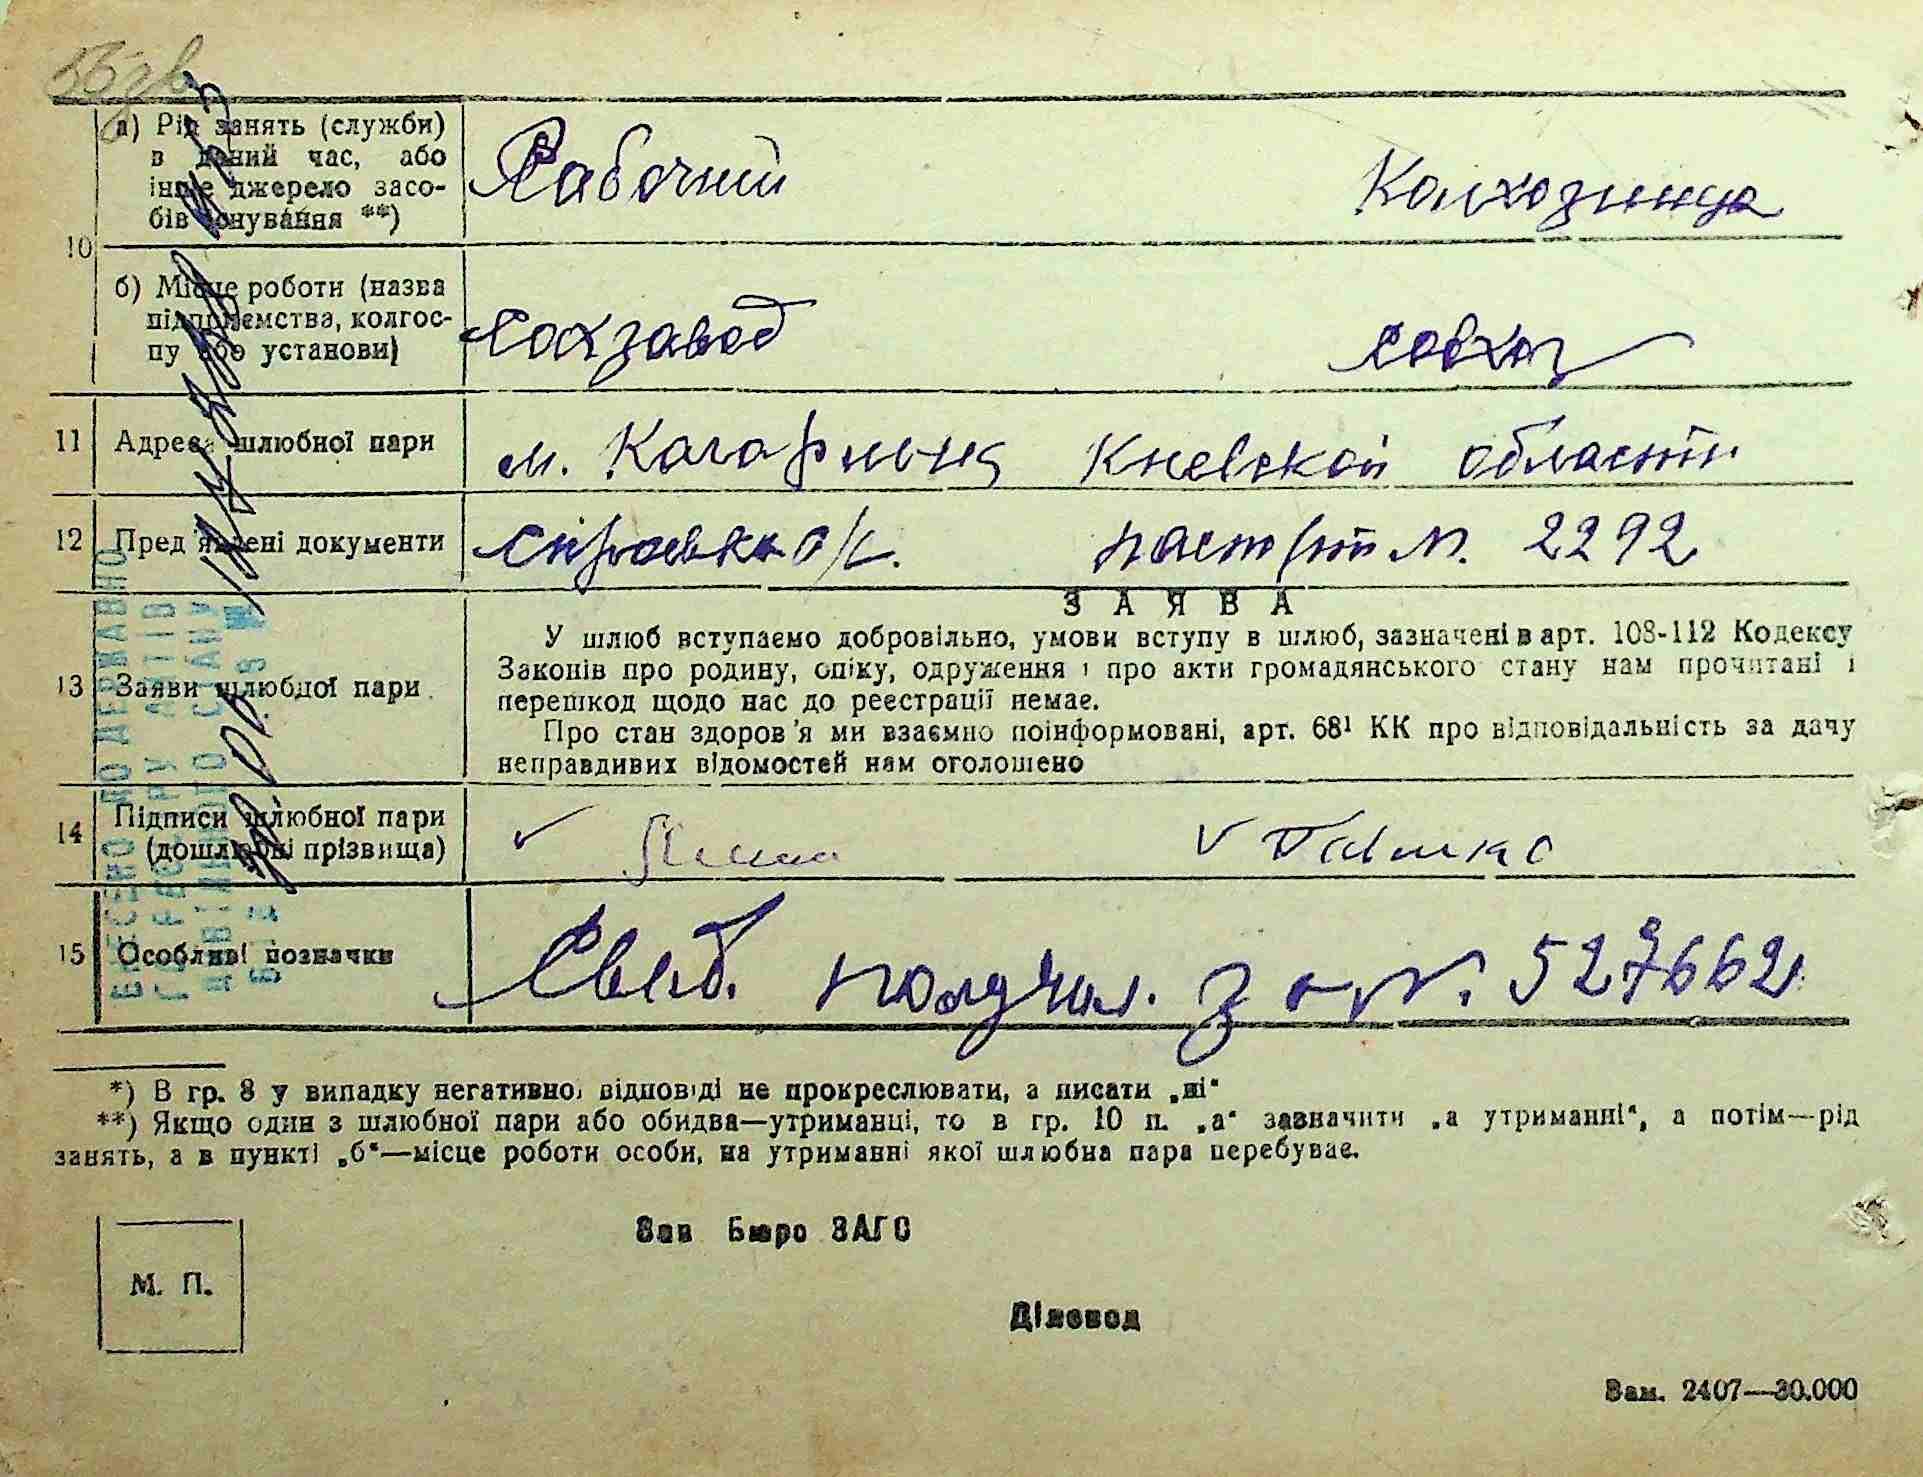 а) Рід занять (служби)
в даний час, або
інше джерело засо-
бів існування **)
Рабочий
Колхозница
10
б) Місце роботи (назва
підприємства, колгос-
пу або установи)
Сахзавод
совхоз
11
Адреса шлюбної пари
м. Кагарлык Киевской области
12
Пред'явлені документи
справка с/с.
паспорт №. 2292
ЗАЯВА
13
Заяви шлюбної пари
У шлюб вступаємо добровільно, умови вступу в шлюб, зазначені в арт. 108-112 Кодексу
Законів про родину, опіку, одруження і про акти громадянського стану нам прочитані і
перешкод щодо нас до реєстрації немає.
Про стан здоров'я ми взаємно поінформовані, арт. 68¹ КК про відповідальність за дачу
неправдивих відомостей нам оголошено
14
Підписи шлюбної пари
(дошлюбні прізвища)
15
Особливі позначки
Свид. получил. за №. 527662
*) В гр. 8 у випадку негативної відповіді не прокреслювати, а писати „ні“
**) Якщо один з шлюбної пари або обидва—утриманці, то в гр. 10 п. „а“ зазначити „а утриманні“, а потім—рід
занять, а в пункті „б“—місце роботи особи, на утриманні якої шлюбна пара перебуває.
Зав Бюро ЗАГС
М. П.
Діловод
Зам. 2407—30.000
ВНЕСЕНО ДО ДЕРЖАВНОГО
РЕЄСТРУ АКТІВ
ЦИВІЛЬНОГО СТАНУ